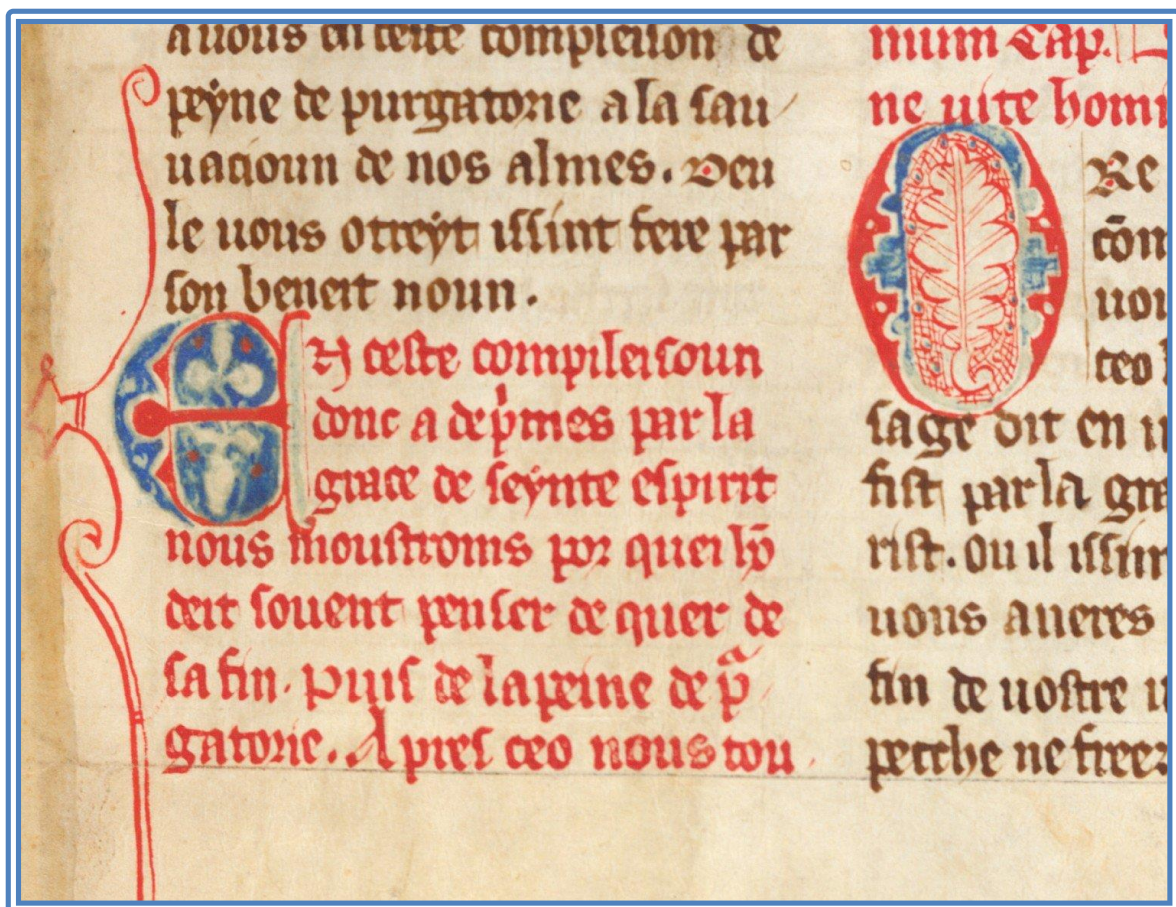 auous en ceste compleisoun de
peyne de purgatorie a la sau
uacioun de nos almes. Deu
le uous otreyt issint fere par
son beneit noun.
En ceste compileisoun
donc a depͥmes par la
grace de seynte espirit
nous moustroms por quei
deit souent penser de quer de
sa fin. Puis de la peine de pͬ
gatorie. Apres ceo nous tou
mum Cap.
ne uite homi
O Re
cōn
uou
ceo
sage dit en
fist par la gra
rist. Ou il issin
uous aueres
fin de uostre
pecche ne freez